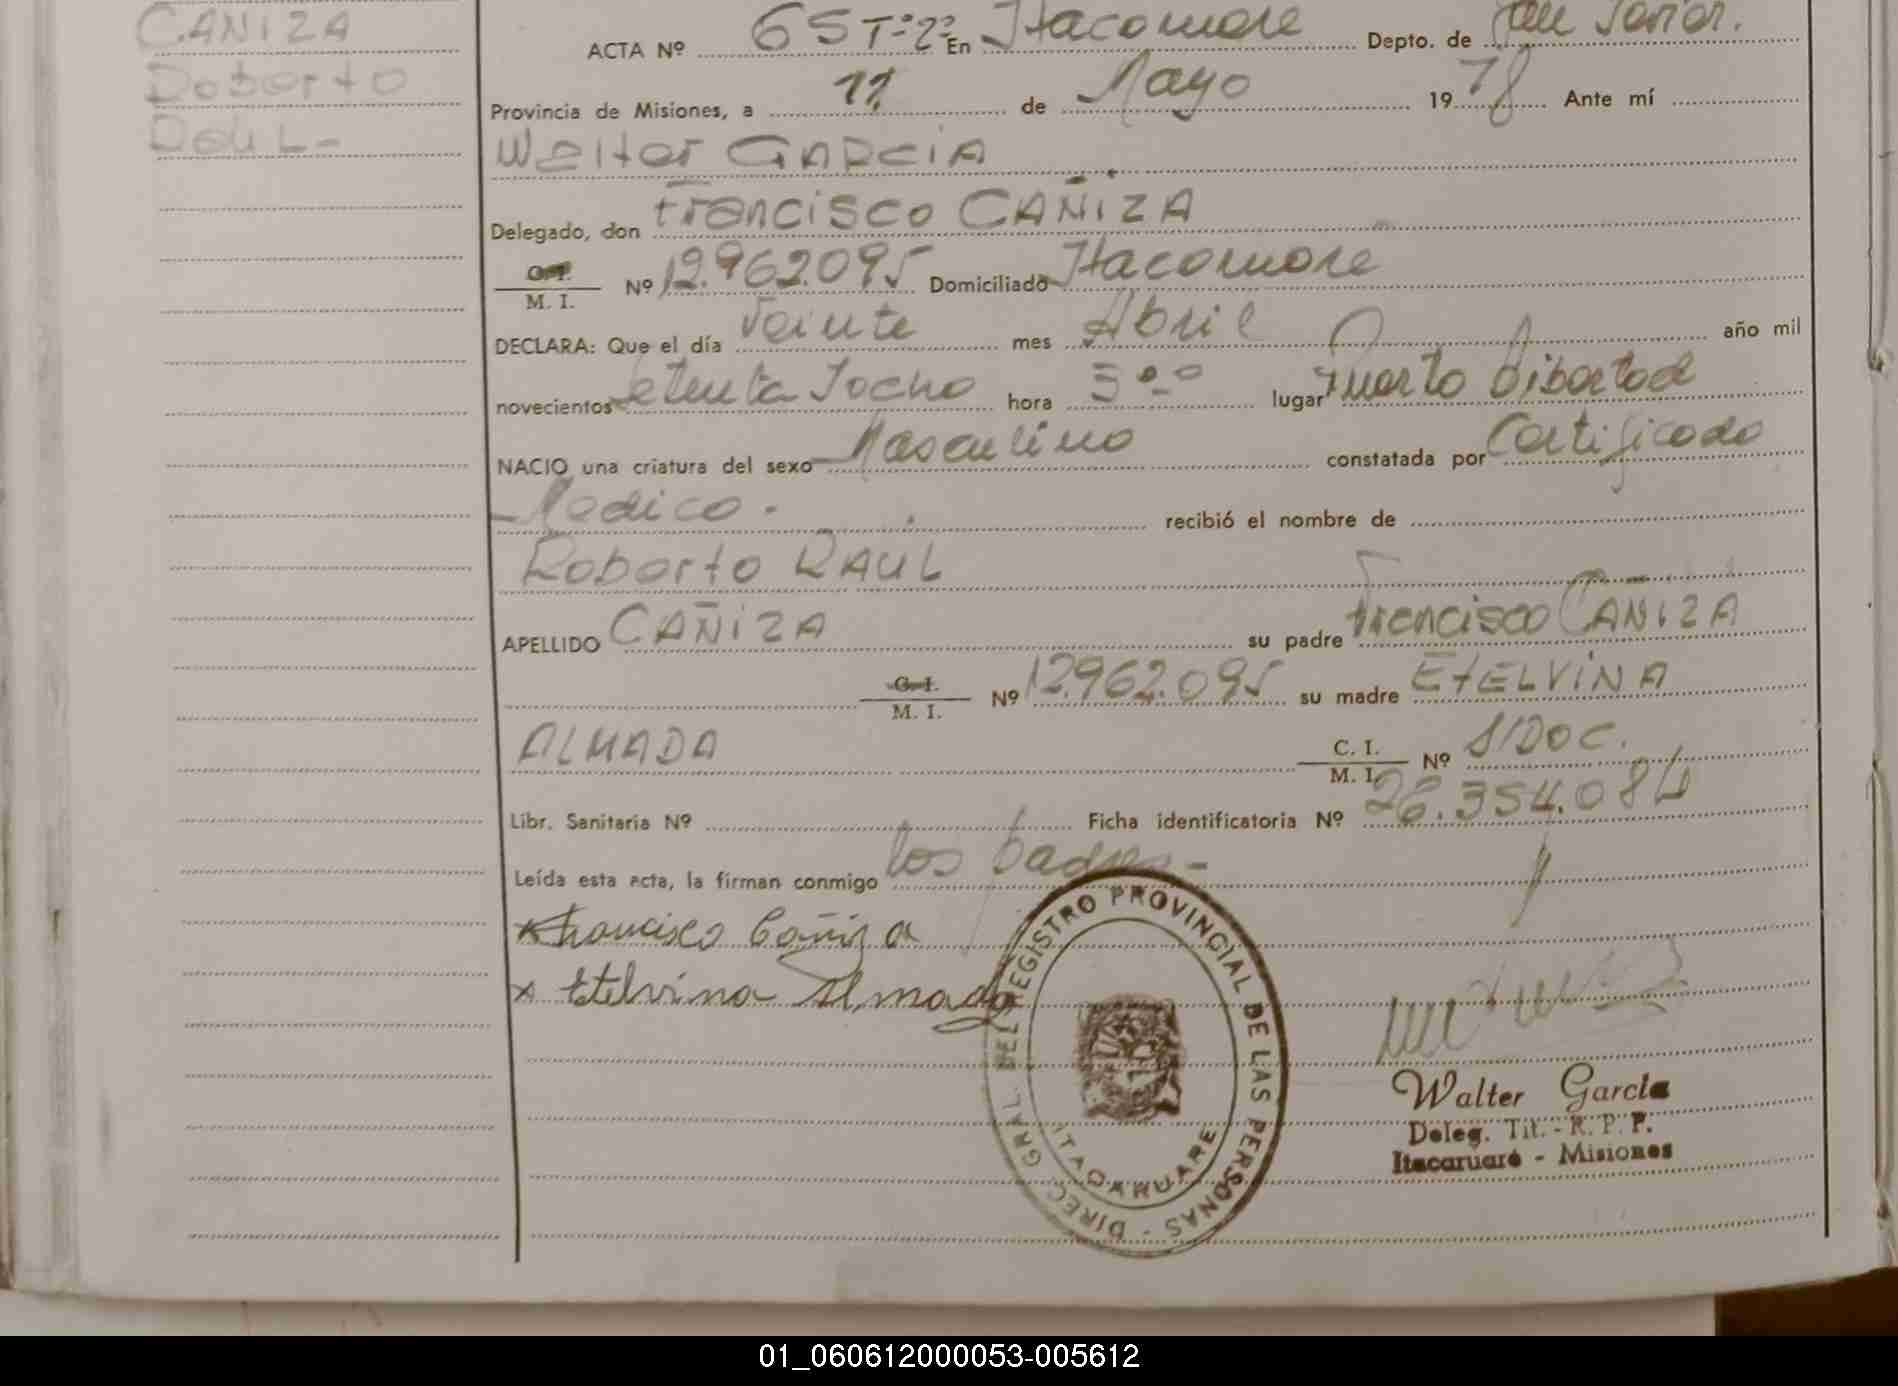 CAÑIZA
Roberto
Raul-
ACTA Nº 65 Tº 2º En Itacaruare Depto. de San Javier.
Provincia de Misiones, a 11 de Mayo 1978 Ante mí
Walter GARCIA
Delegado, don Francisco CAÑIZA
C. I.
M. I. Nº 12.962.095 Domiciliado Itacaruare
DECLARA: Que el día Veinte mes Abril año mil
novecientos setenta y ocho hora 3 lugar Puerto Libertad
NACIO una criatura del sexo Masculino constatada por Certificado
Medico. recibió el nombre de
Roberto RAUL
APELLIDO CAÑIZA su padre Francisco CAÑIZA
C. I.
M. I. Nº 12.962.095 su madre ETELVINA
ALMADA C. I.
M. I. Nº S/DOC.
Libr. Sanitaria Nº Ficha identificatoria Nº 26.354.084
Leída esta acta, la firman conmigo los padres-
x Francisco Cañiza
x Etelvina Almada
DIREC. GRAL. DEL REGISTRO PROVINCIAL DE LAS PERSONAS -
ITACARUARE
Walter García
Deleg. Tit. - R. P. P.
Itacaruaré - Misiones
01_060612000053-005612